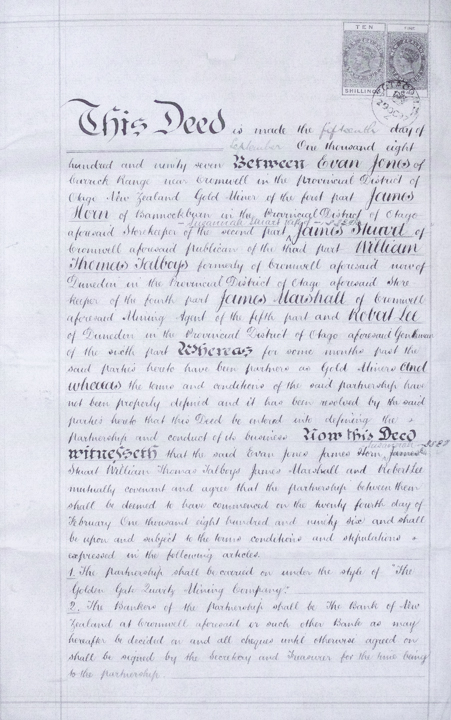 TEN
SHILLINGS
This Deed is made the fifteenth day of
September One thousand eight
hundred and ninety seven Between Evan Jones of
Carrick Range near Cromwell in the provincial District of
Otago New Zealand Gold Miner of the first part James
Horn of Bannockburn in the Provincial District of Otago
aforesaid Storekeeper of the second part James Stuart of
Cromwell aforesaid publican of the third part William
Thomas Talboys formerly of Cromwell aforesaid now of
Dunedin in the Provincial District of Otago aforesaid Store
keeper of the fourth part James Marshall of Cromwell
aforesaid Mining Agent of the fifth part and Robert Lee
of Dunedin in the Provincial District of Otago aforesaid Gentleman
of the sixth part Whereas for some months past the
said parties hereto have been partners as Gold Miners And
whereas the terms and conditions of the said partnership have
not been properly defined and it has been resolved by the said
parties hereto that this Deed be entered into defining the
partnership and conduct of its business Now this Deed
witnesseth that the said Evan Jones James Horn James
Stuart William Thomas Talboys James Marshall and Robert Lee
mutually covenant and agree that the partnership between them
shall be deemed to have commenced on the twenty fourth day of
February One thousand eight hundred and ninety six and shall
be upon and subject to the terms conditions and stipulations
expressed in the following articles.
1. The partnership shall be carried on under the style of "The
Golden Gate Quartz Mining Company".
2. The Bankers of the partnership shall be The Bank of New
Zealand at Cromwell aforesaid or such other Bank as may
hereafter be decided on and all cheques until otherwise agreed on
shall be signed by the Secretary and Treasurer for the time being
to the partnership